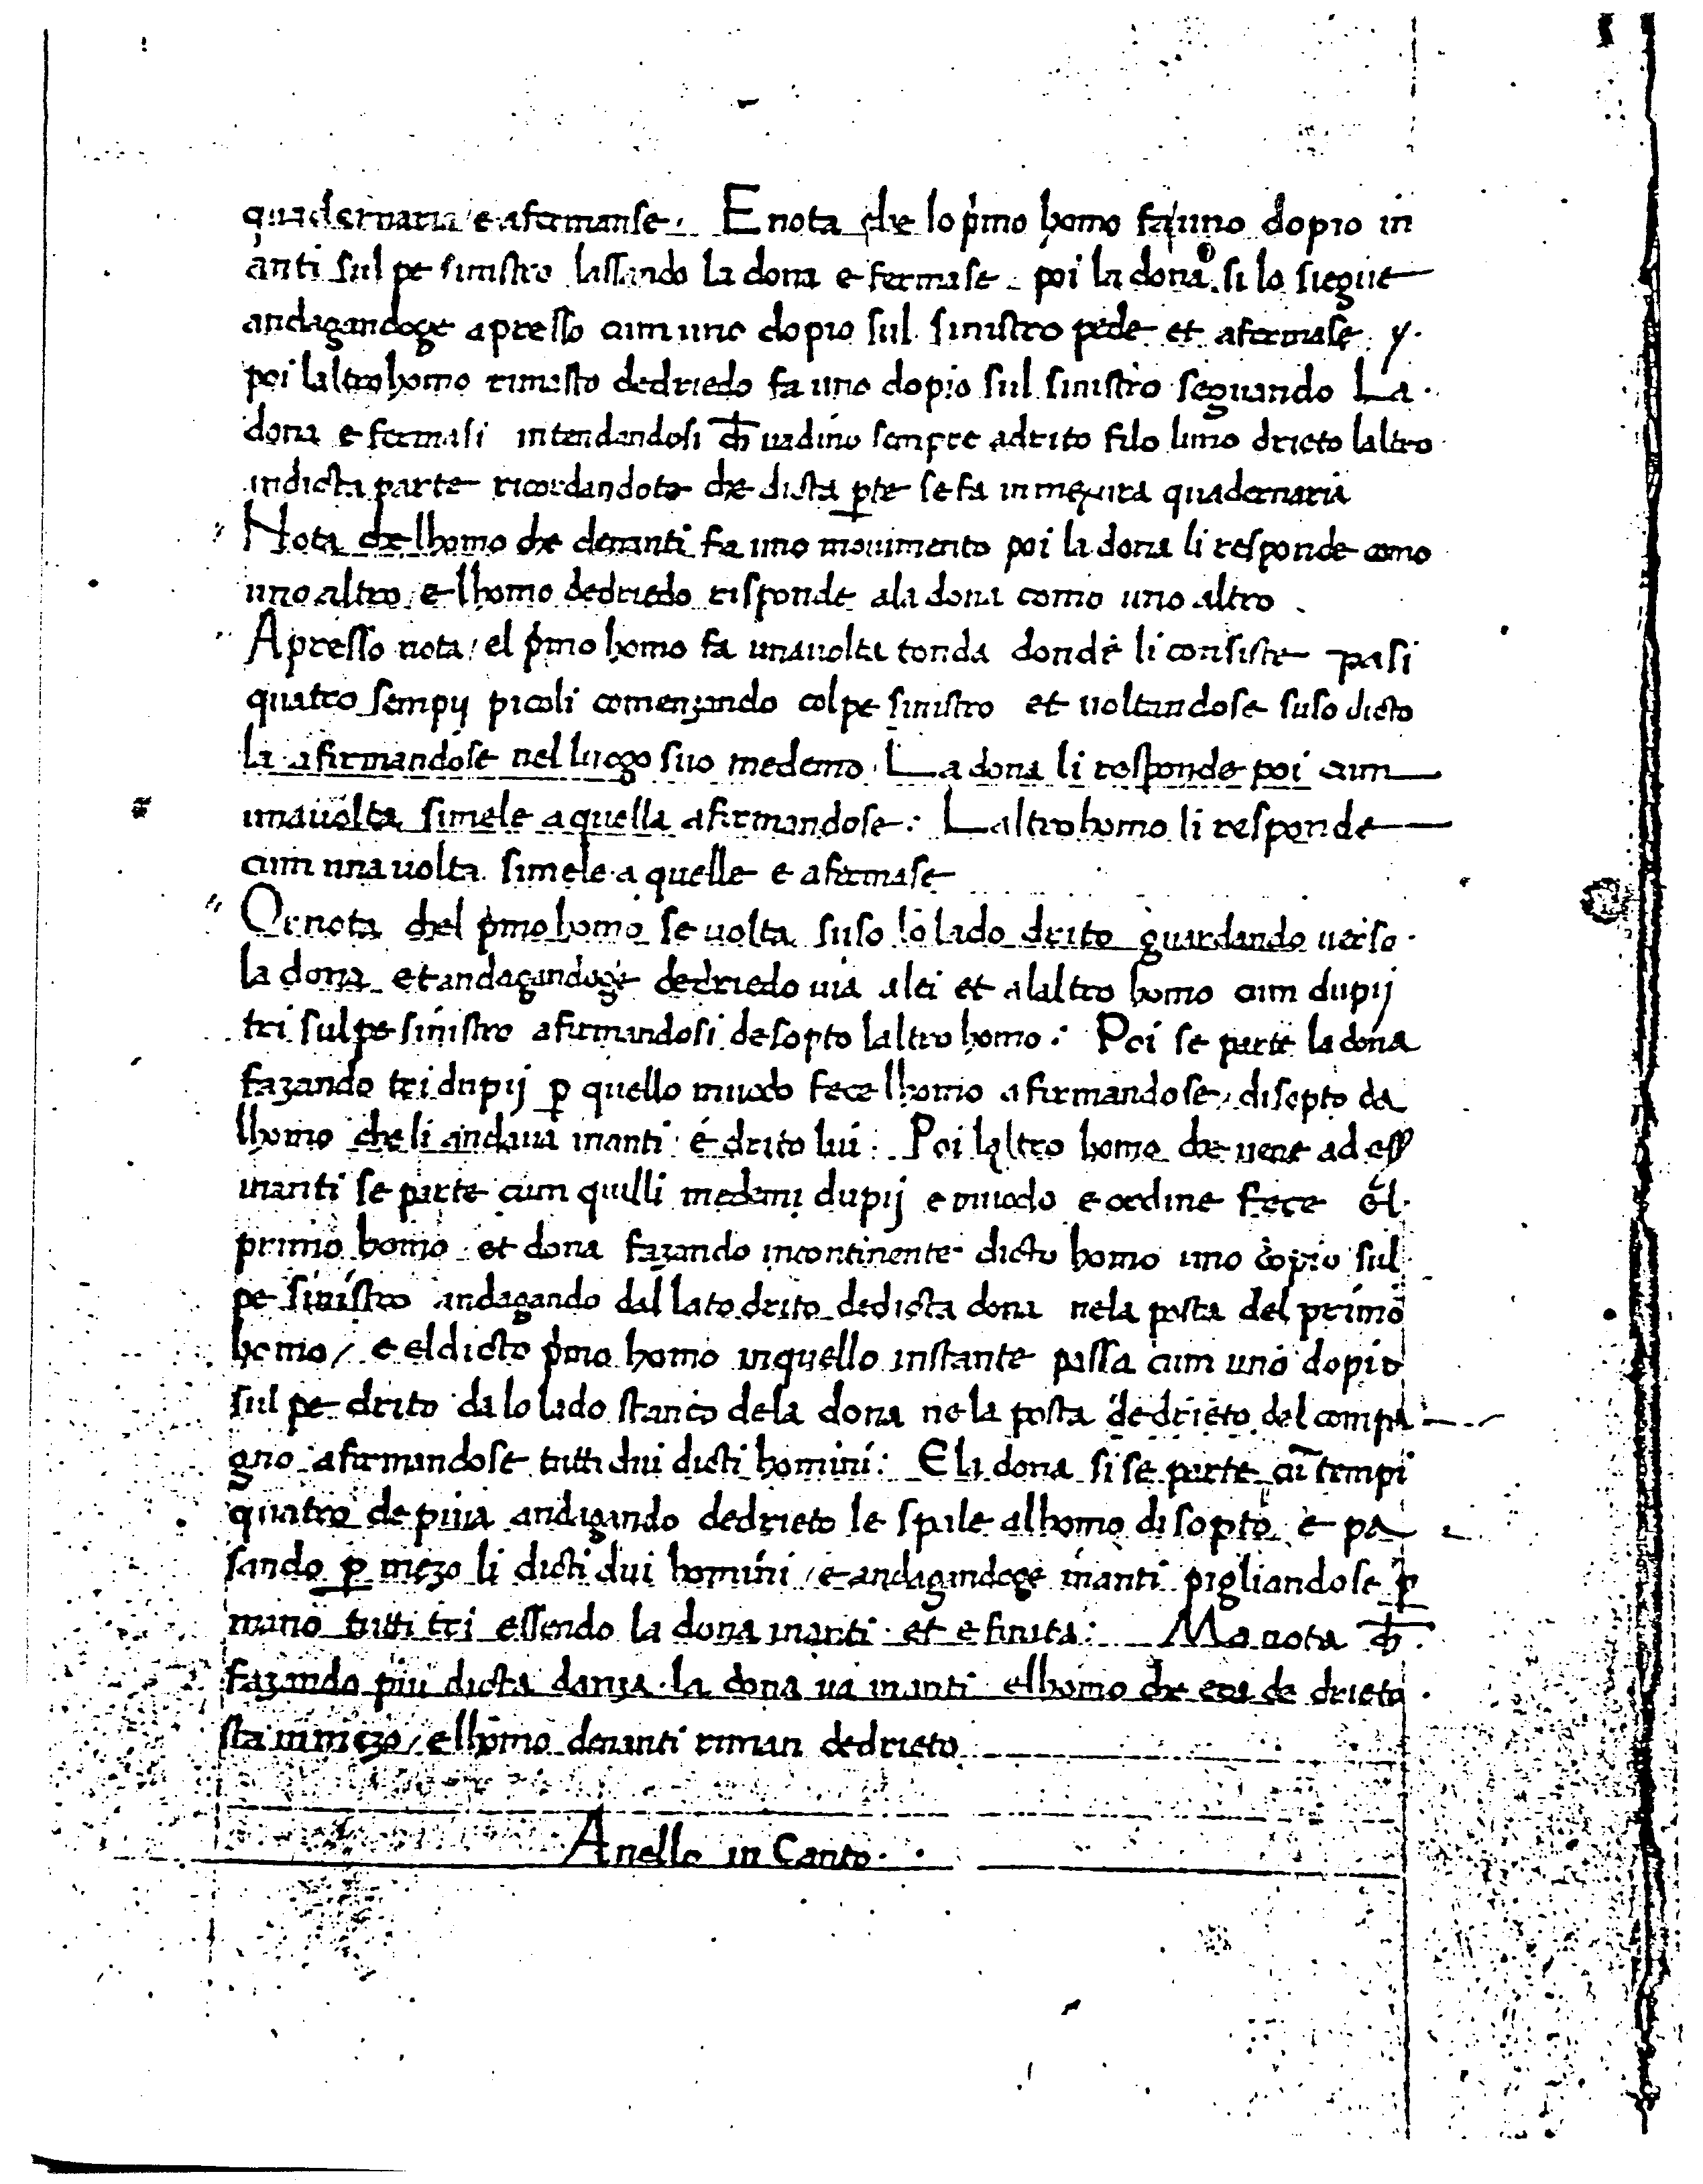 quadernaria / e afermanse. E nota che lo p̄mo homo fa uno dopio in
anti sul pe sinistro lassando la dona e fermase. poi la dona si lo siegue
andagandoge apresso cum uno dopio sul sinistro pede et afermase. y.
poi laltro homo rimasto dedriedo fa uno dopio sul sinistro seguando La.
dona e fermasi intendandosi ch̄ uadino sempre a drito filo luno drieto laltro
in dicta parte ricordandoto che dicta ꝑte se fa in mexura quadernaria
" Nota che lhomo che denanti fa uno mouimento poi la dona li responde como
uno altro / e lhomo dedriedo risponde ala dona como uno altro.
" Apresso nota / el p̄mo homo fa una uolta tonda dondè li consiste pasi
quatro sempij picoli comenzando col pe sinistro et uoltandose suso dicto
la afirmandose nel luogo suo medemo. La dona li responde poi cum
una uolta simele a quella afirmandose: Laltro homo li responde
cum una uolta simele a quelle e afermase
" Or nota chel p̄mo homo se uolta suso lo lado drito guardando uerso.
la dona et andagandoge dedriedo uia a lei et alaltro homo cum dupij
tri sul pe sinistro afirmandosi desopto laltro homo: Poi se parte la dona
fazando tri dupij ꝑ quello muodo fece lhomo afirmandose / disopto da
lhomo che li andaua inanti e drito lui: Poi laltro homo che uene ad ess̄
inanti se parte cum quilli medemi dupij e muodo e ordine fece el.
primo homo et dona fazando incontinente dicto homo uno dopio sul
pe sinistro andagando dal lato drito de dicta dona nela posta del primo
homo / e el dicto p̄mo homo in quello instante passa cum uno dopio
sul pe drito da lo lado stanco dela dona nela posta dedrieto del compa
gno afirmandose tutti dui dicti homini: E la dona si se parte cū tempi
quatro de piua andagando dedrieto le spale alhomo disopto e pa
sando ꝑ mezo li dicti dui homini / e andagandoge inanti pigliandose ꝑ
mano tutti tri essendo la dona inanti et e finita: Ma nota ch̄.
fazando piu dicta danza. la dona ua inanti elhomo che era de drieto.
sta in mezo / e lhomo denanti riman dedrieto
Anello in Canto.